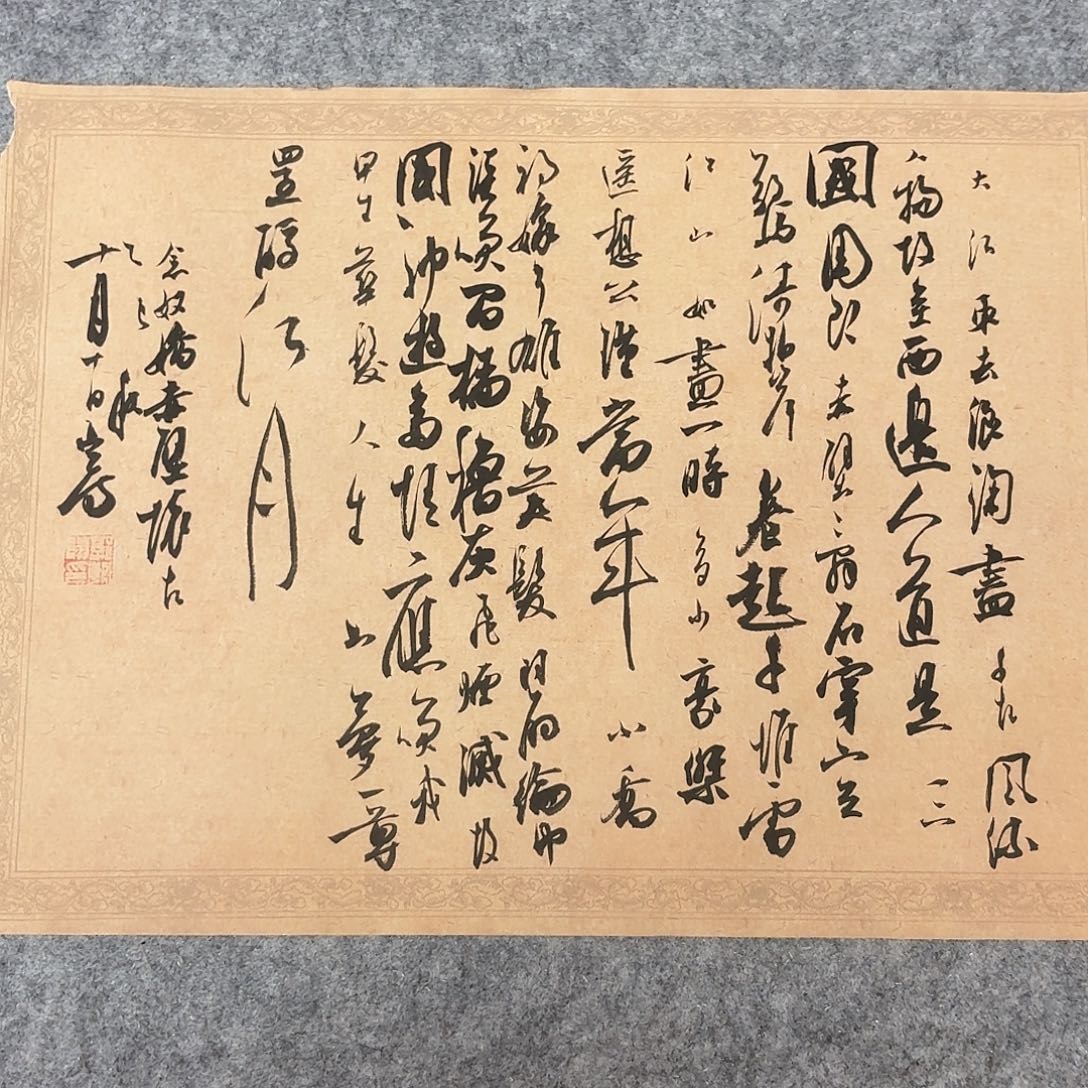 大江東去浪淘盡千古風流
人物故壘西邊人道是三
國周郎赤壁亂石穿空
驚濤拍岸卷起千堆雪
江山如畫一時多少豪傑
遙想公瑾當年小喬
初嫁了雄姿英發羽扇綸巾
談笑間檣櫓灰飛煙滅故
國神遊多情應笑我
早生華髮人生如夢一尊
還酹江月
念奴嬌赤壁懷古
秋
十月十日